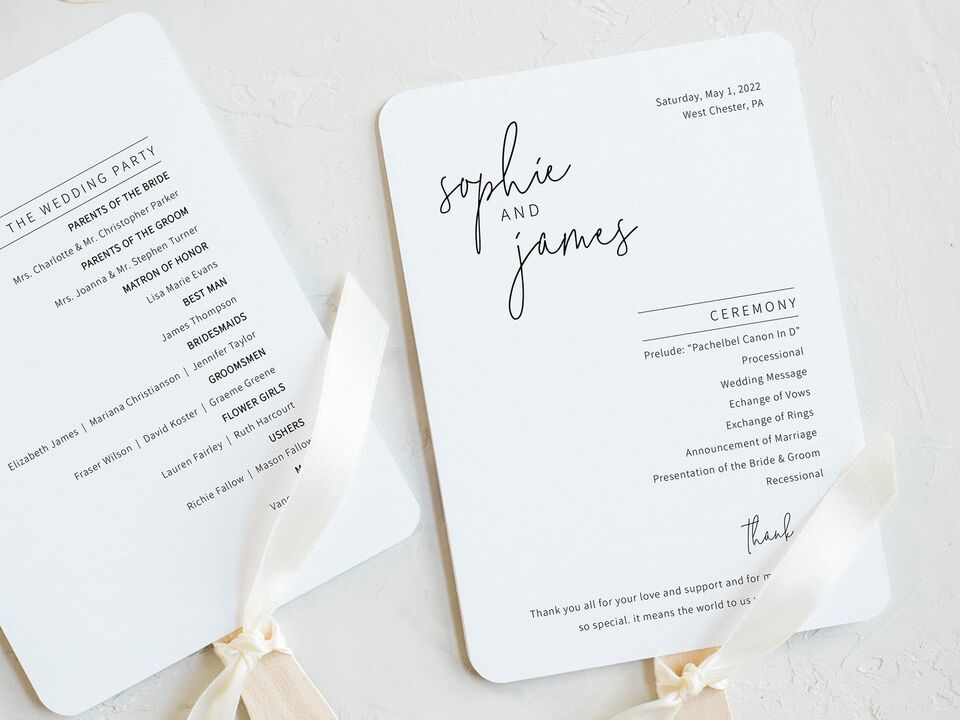 THE WEDDING PARTY
PARENTS OF THE BRIDE
Mrs. Charlotte & Mr. Christopher Parker
PARENTS OF THE GROOM
Mrs. Joanna & Mr. Stephen Turner
MATRON OF HONOR
Lisa Marie Evans
BEST MAN
James Thompson
BRIDESMAIDS
Elizabeth James | Mariana Christianson | Jennifer Taylor
GROOMSMEN
Fraser Wilson | David Koster | Graeme Greene
FLOWER GIRLS
Lauren Fairley | Ruth Harcourt
USHERS
Richie Fallow | Mason Fallow
Saturday, May 1, 2022
West Chester, PA
sophie
AND
james
CEREMONY
Prelude: “Pachelbel Canon In D”
Processional
Wedding Message
Echange of Vows
Exchange of Rings
Announcement of Marriage
Presentation of the Bride & Groom
Recessional
thank
Thank you all for your love and support and for
so special. it means the world to us